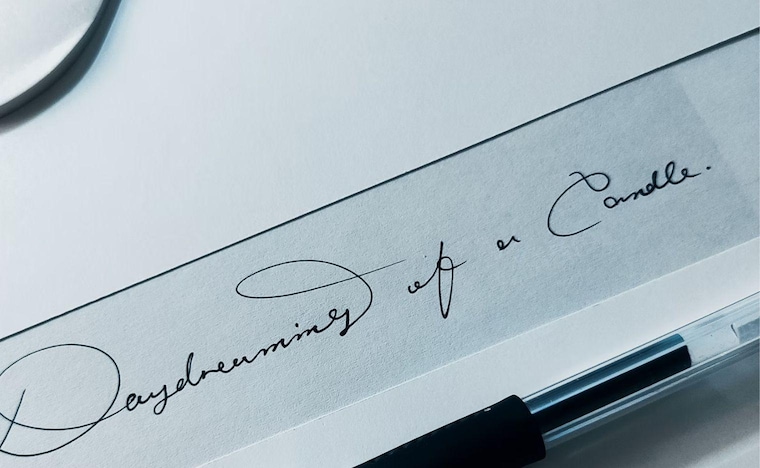 Daydreaming of a Candle.